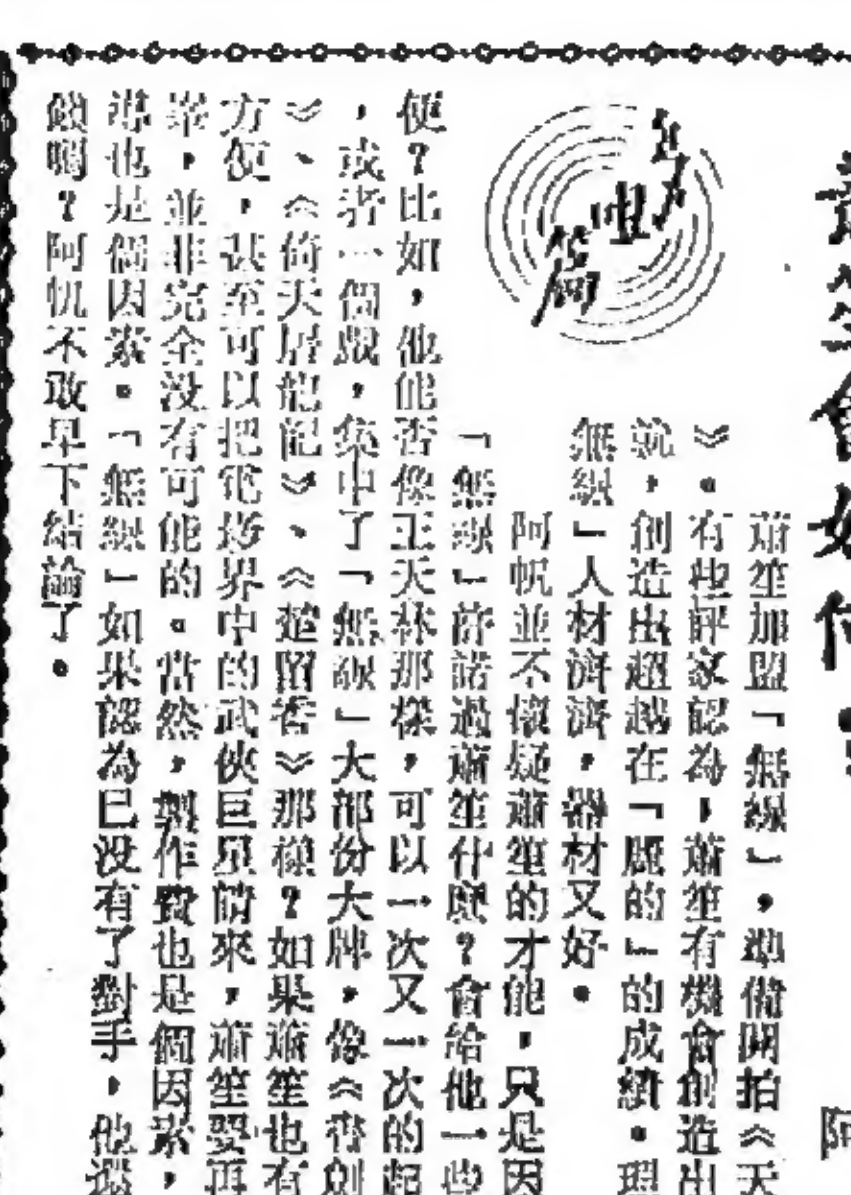 蕭笙會如何？
阿
蕭笙加盟「無線」，準備開拍《天
》。有些評家認為，蕭笙有機會創造出
就，創造出超越在「麗的」的成績。理
無線」人材濟濟，器材又好。
阿帆並不懷疑蕭笙的才能，只是因
「無線」許諾過蕭笙什麼？會給他一些
便？比如，他能否像王天林那樣，可以一次又一次的起
，或者一個戲，集中了「無線」大部份大牌，像《書劍
》、《倚天屠龍記》、《楚留香》那樣？如果蕭笙也有
方便，甚至可以把電影界中的武俠巨星請來，蕭笙要再
，並非完全沒有可能的。當然，製作費也是個因素，
導也是個因素。「無線」如果認為已沒有了對手，他還
嗎？阿帆不敢早下結論了。